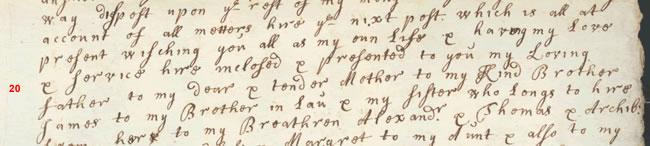 way dispost upon yr rest of my
account of all metters hire yr nixt post. which is all at
present wisching you all as my oun Life & having my Love
& service hire inclosed & presented to you my Loving
20 father to my dear & tender Mother to my Kind Brother
James to my Brother in Lau & my sister who Longs to hire
from her to my Breathren Alexandr. & Thomas & Archib:
Margaret to my Aunt & also to my